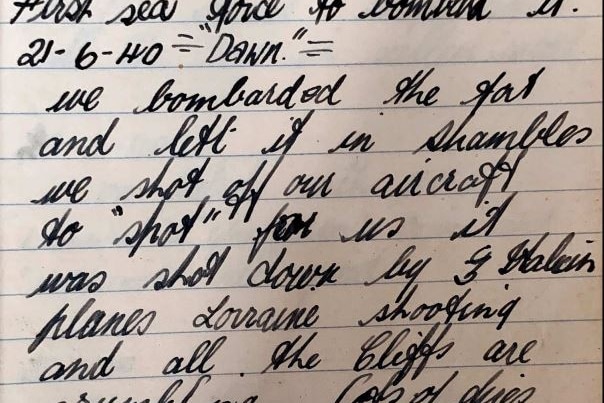 First sea Lord to bombard it.
21-6-40 = "Dawn." =
we bombarded the fort
and left it in shambles
we shot off our aircraft
to "spot" for us it
was shot down by Italian
planes Lorraine shooting
and all the Cliffs are